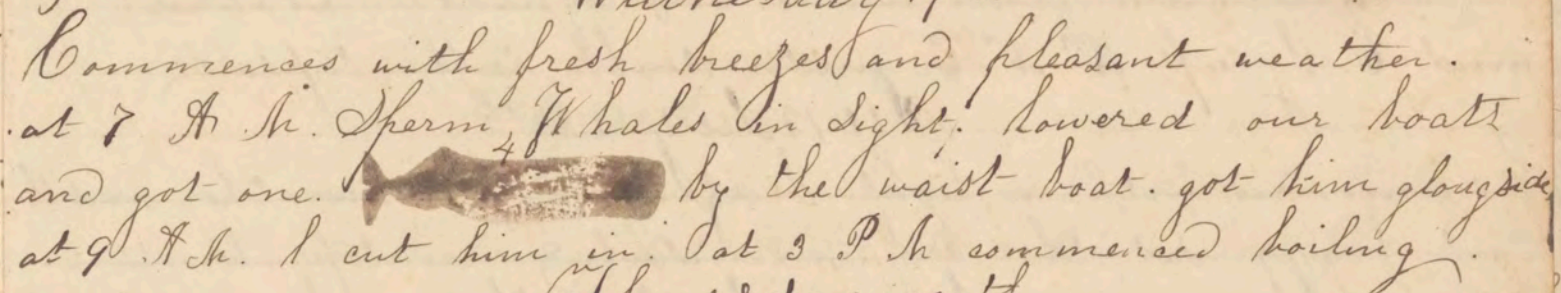 Wednesday
Commences with fresh breezes and pleasant weather.
at 7 A. M. Sperm Whales in Sight; lowered our boats
and got one. 4 by the waist boat. got him alongside
at 9 A. M. & cut him in. at 3 P M commenced boiling.